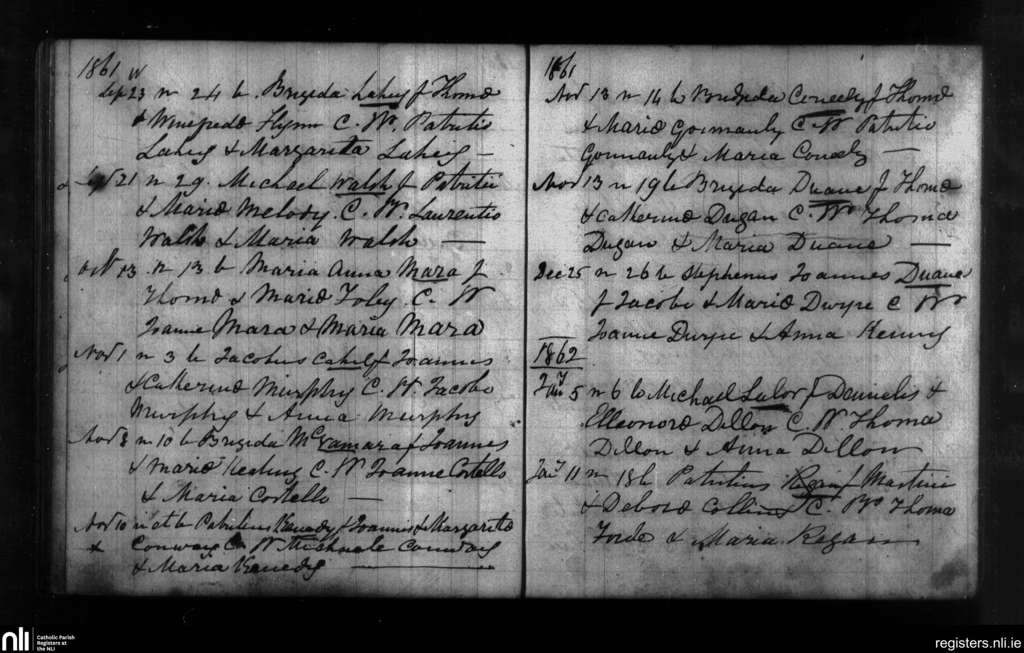 1861
Sep 23 n 24 b Brigida Lahey f Thomæ
& Winefredæ Flynn C. W. Patritio
Lahey & Margarita Lahey —
21 n 29. Michael Walsh f Patritii
& Mariæ Melody. C. W. Laurentio
Walsh & Maria Walsh —
Oct 13 n 13 b Maria Anna Mara f
Thomæ & Mariæ Foley. C. W
Joanne Mara & Maria Mara
Nov 1 n 3 b Jacobus Cahel f Joannis
& Catherinæ Murphy C. W. Jacobo
Murphy & Anna Murphy
Nov 8 n 10 b Brigida McNamara f Joannes
& Mariæ Keating C. W Joanne Costello
& Maria Costello —
Nov 10 n et b Patritius Kenedy f Joannis & Margaritæ
& Conway C W Michaele Conway
& Maria Kenedy —
1861
Nov 13 n 14 b Bridgida Coneely f Thomæ
& Mariæ Gormanly C W Patritio
Gormanly & Maria Coneely —
Nov 13 n 19 b Brigida Duane f Thomæ
& Catherinæ Dugan C. W. Thoma
Dugan & Maria Duane —
Dec 25 n 26 b Stephenus Joannes Duane
f Jacobi & Mariæ Dwyre C W
Joanne Dwyre & Anna Kenny
1862
Jany 5 n 6 b Michael Lalor f Danielis &
Elleonoræ Dillon C. W Thoma
Dillon & Anna Dillon
Jany 11 n 18 b Patritius Regan f Martini
& Deboræ Collins C. W Thoma
Forde & Maria Regan
nli
Catholic Parish
Registers at
the NLI
registers.nli.ie